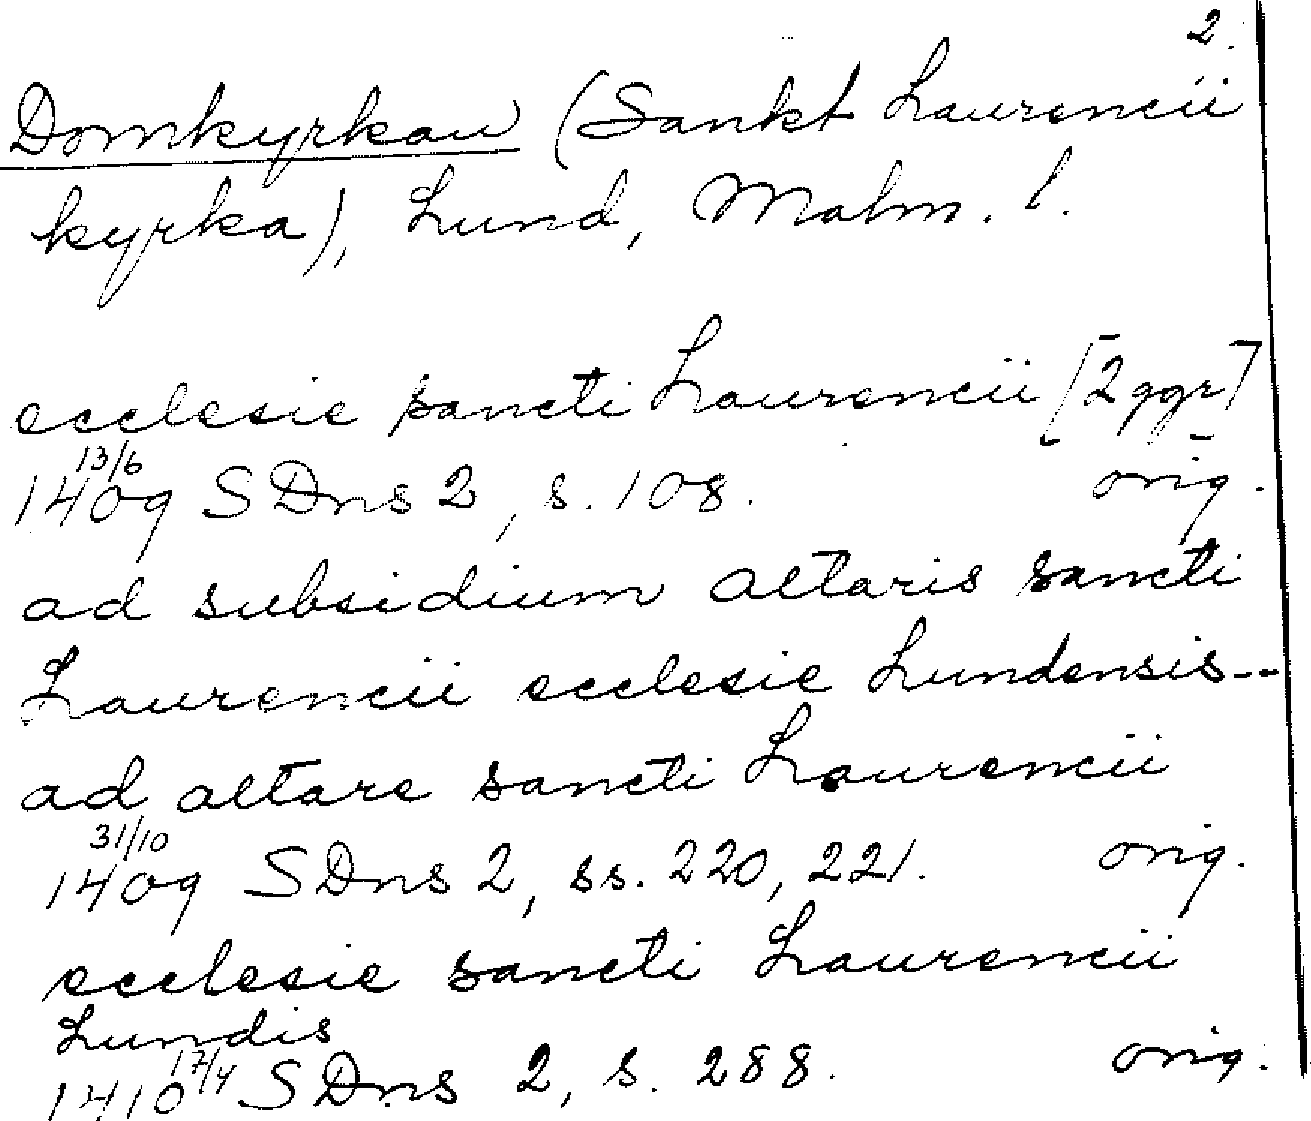 2.
Domkyrkan (Sankt Laurencii
kyrka), Lund, Malm. l.
ecclesie sancti Laurencii [2 ggr]
13/6
1409 SDns 2, s. 108. orig.
ad subsidium altaris sancti
Laurencii ecclesie Lundensis--
ad altare sancti Laurencii
31/10
1409 SDns 2, ss. 220, 221. orig.
ecclesie sancti Laurencii
Lundis
1410 17/4 SDns 2, s. 288. orig.